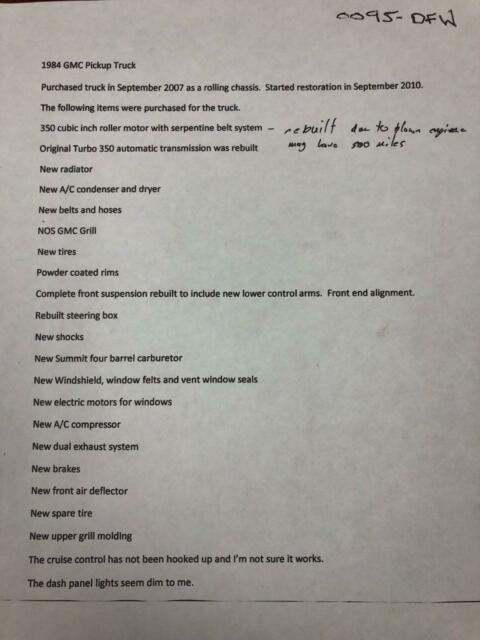 0095-DFW
1984 GMC Pickup Truck
Purchased truck in September 2007 as a rolling chassis. Started restoration in September 2010.
The following items were purchased for the truck.
350 cubic inch roller motor with serpentine belt system – rebuilt due to blown engine
Original Turbo 350 automatic transmission was rebuilt may have 500 miles
New radiator
New A/C condenser and dryer
New belts and hoses
NOS GMC Grill
New tires
Powder coated rims
Complete front suspension rebuilt to include new lower control arms. Front end alignment.
Rebuilt steering box
New shocks
New Summit four barrel carburetor
New Windshield, window felts and vent window seals
New electric motors for windows
New A/C compressor
New dual exhaust system
New brakes
New front air deflector
New spare tire
New upper grill molding
The cruise control has not been hooked up and I'm not sure it works.
The dash panel lights seem dim to me.